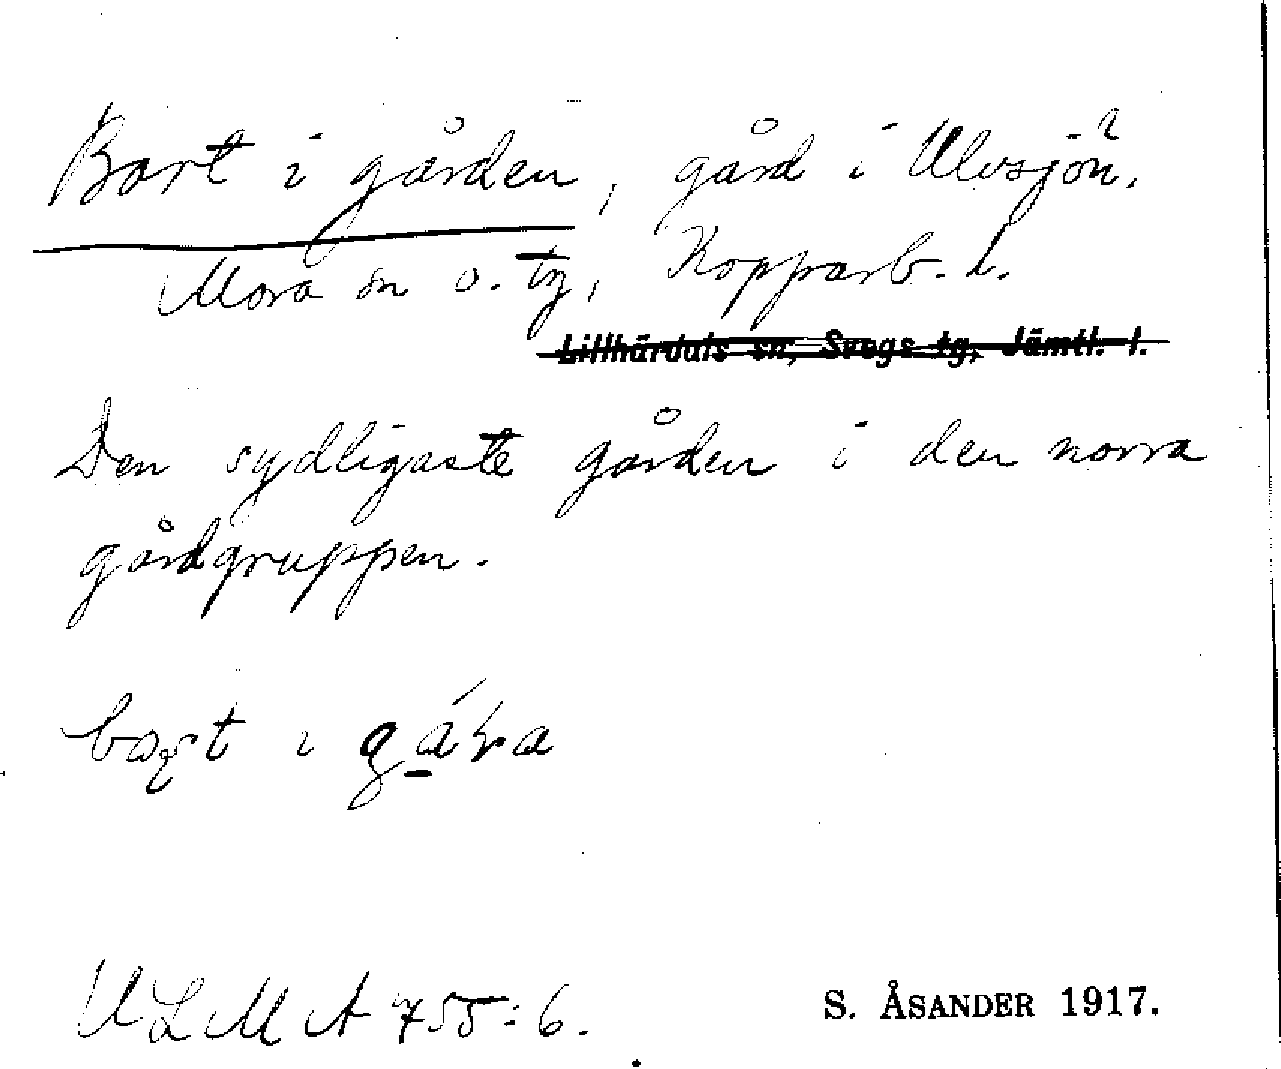 Bort i gården, gård i Ulvsjön.
Mora sn o. tg, Kopparb. l.
Lillhärdals sn, Svegs tg, Jämtl. l.
Den sydligaste gården i den norra
gårdgruppen.
bort i gára
ULMA 755:6.
S. ÅSANDER 1917.